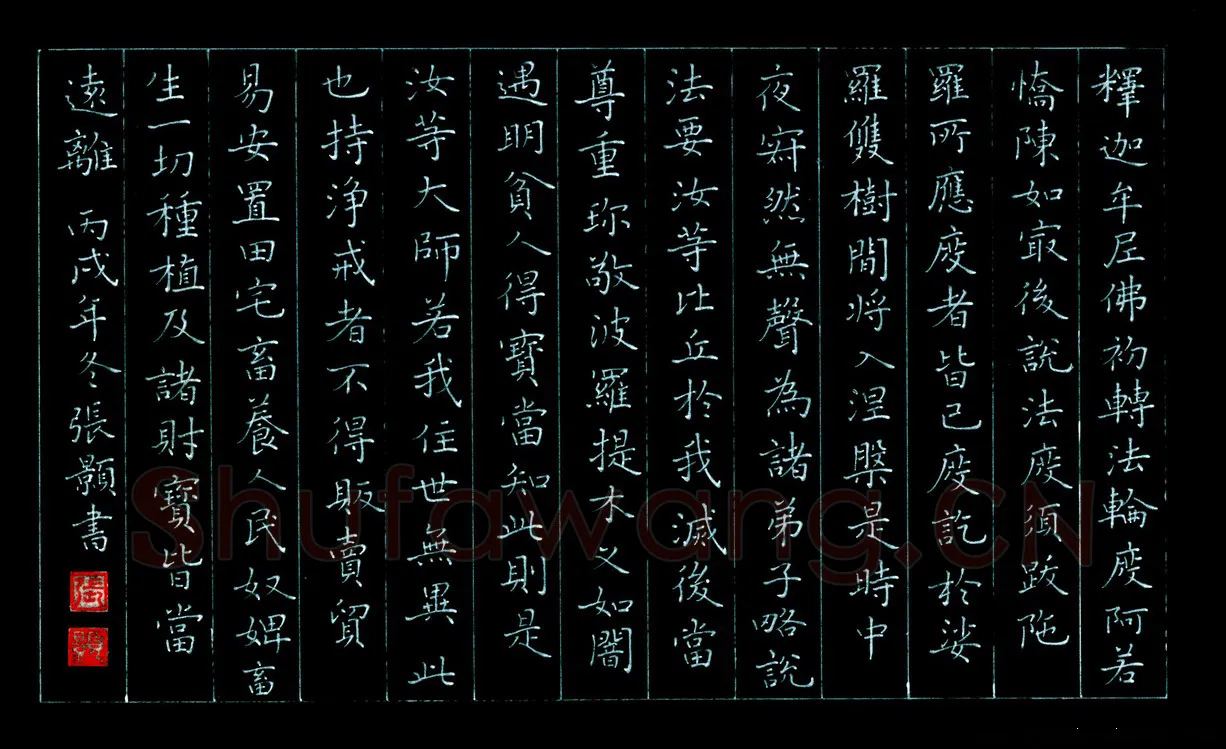 釋迦牟尼佛初轉法輪度阿若
憍陳如㝡後說法度須跋陁
羅所應度者皆已度訖於娑
羅雙樹間将入涅槃是時中
夜㝥然無聲為諸弟子略說
法要汝等比丘於我滅後當
尊重珎敬波羅提木叉如闇
遇明貧人得寶當知此則是
汝等大師若我住世無異此
也持淨戒者不得販賣貿
易安置田宅畜養人民奴婢畜
生一切種植及諸財寶皆當
遠離 丙戌年冬張顥書
Shufawang.CN